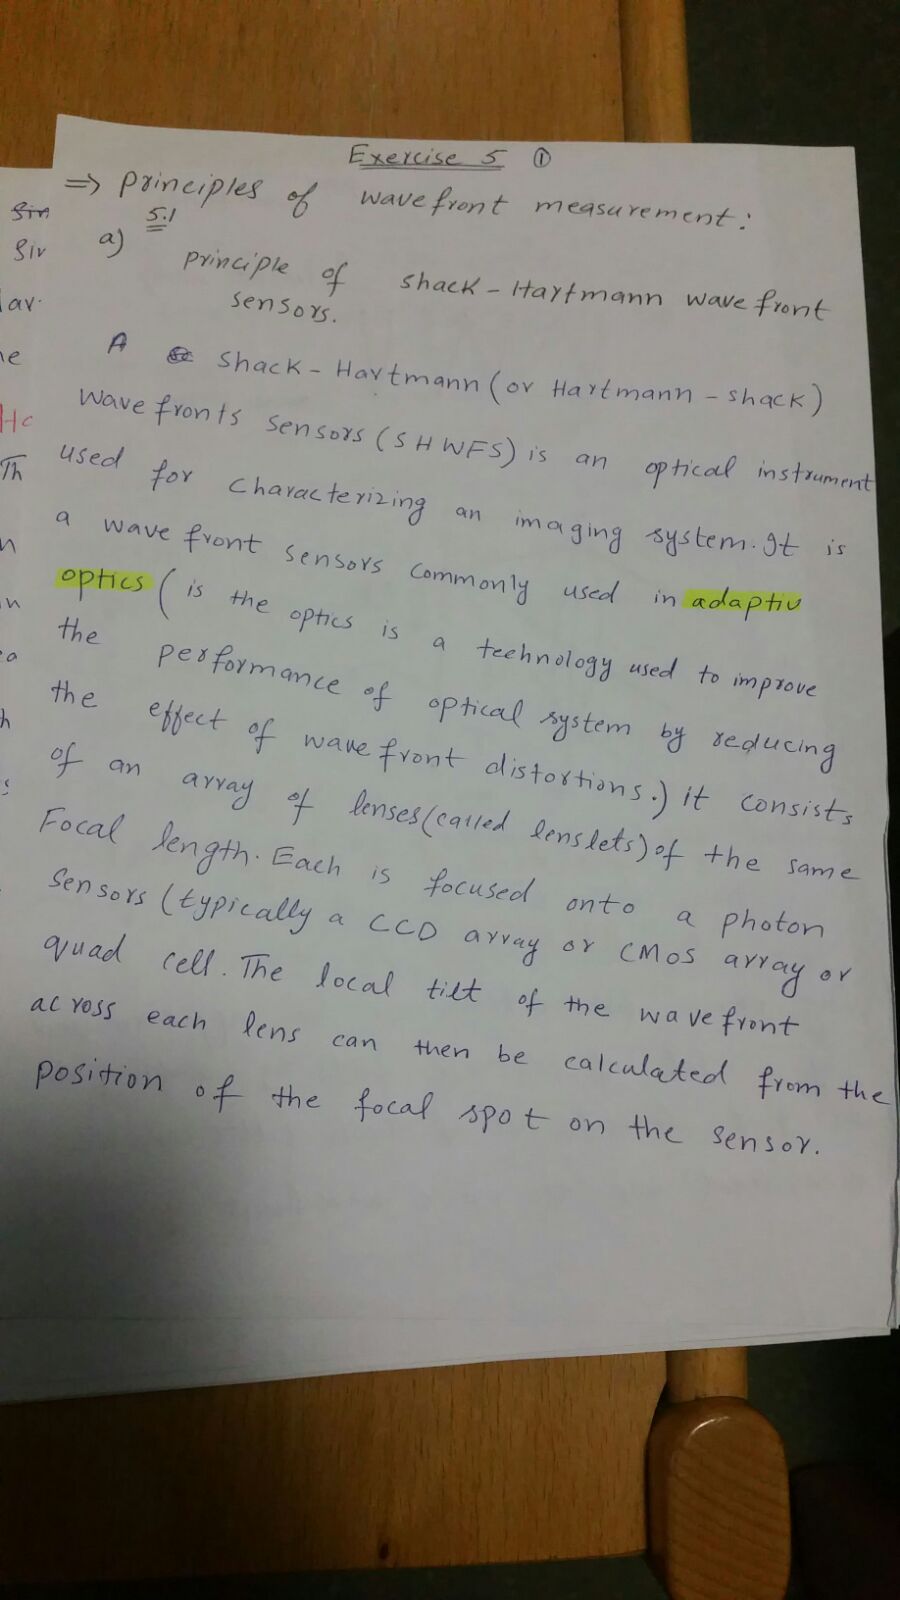 Exercise 5 ①
⇒ Principles of wavefront measurement:
5.1
a) principle of shack-Hartmann wavefront
sensors.
A shack-Hartmann (or Hartmann-shack)
wavefronts sensors (SHWFS) is an optical instrument
used for characterizing an imaging system. It is
a wavefront sensors commonly used in adaptiv
optics (is the optics is a technology used to improve
the performance of optical system by reducing
the effect of wavefront distortions.) it consists
of an array of lenses (called lenslets) of the same
Focal length. Each is focused onto a photon
sensors (typically a CCD array or CMOS array or
quad cell. The local tilt of the wavefront
across each lens can then be calculated from the
position of the focal spot on the sensor.
Sin
Siv
av.
ne
Hc
Th